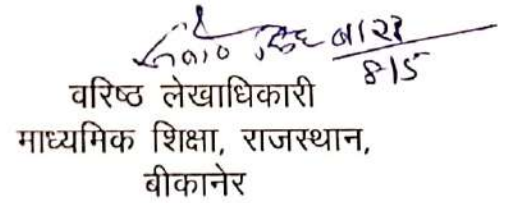 8/5
वरिष्ठ लेखाधिकारी
माध्यमिक शिक्षा, राजस्थान,
बीकानेर